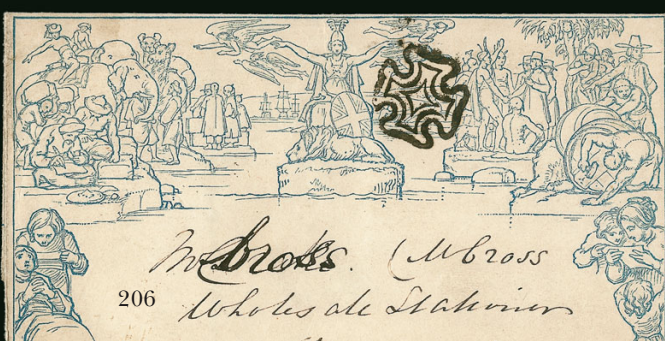 Mr Cross. (M Cross
206
Wholesale Stationer